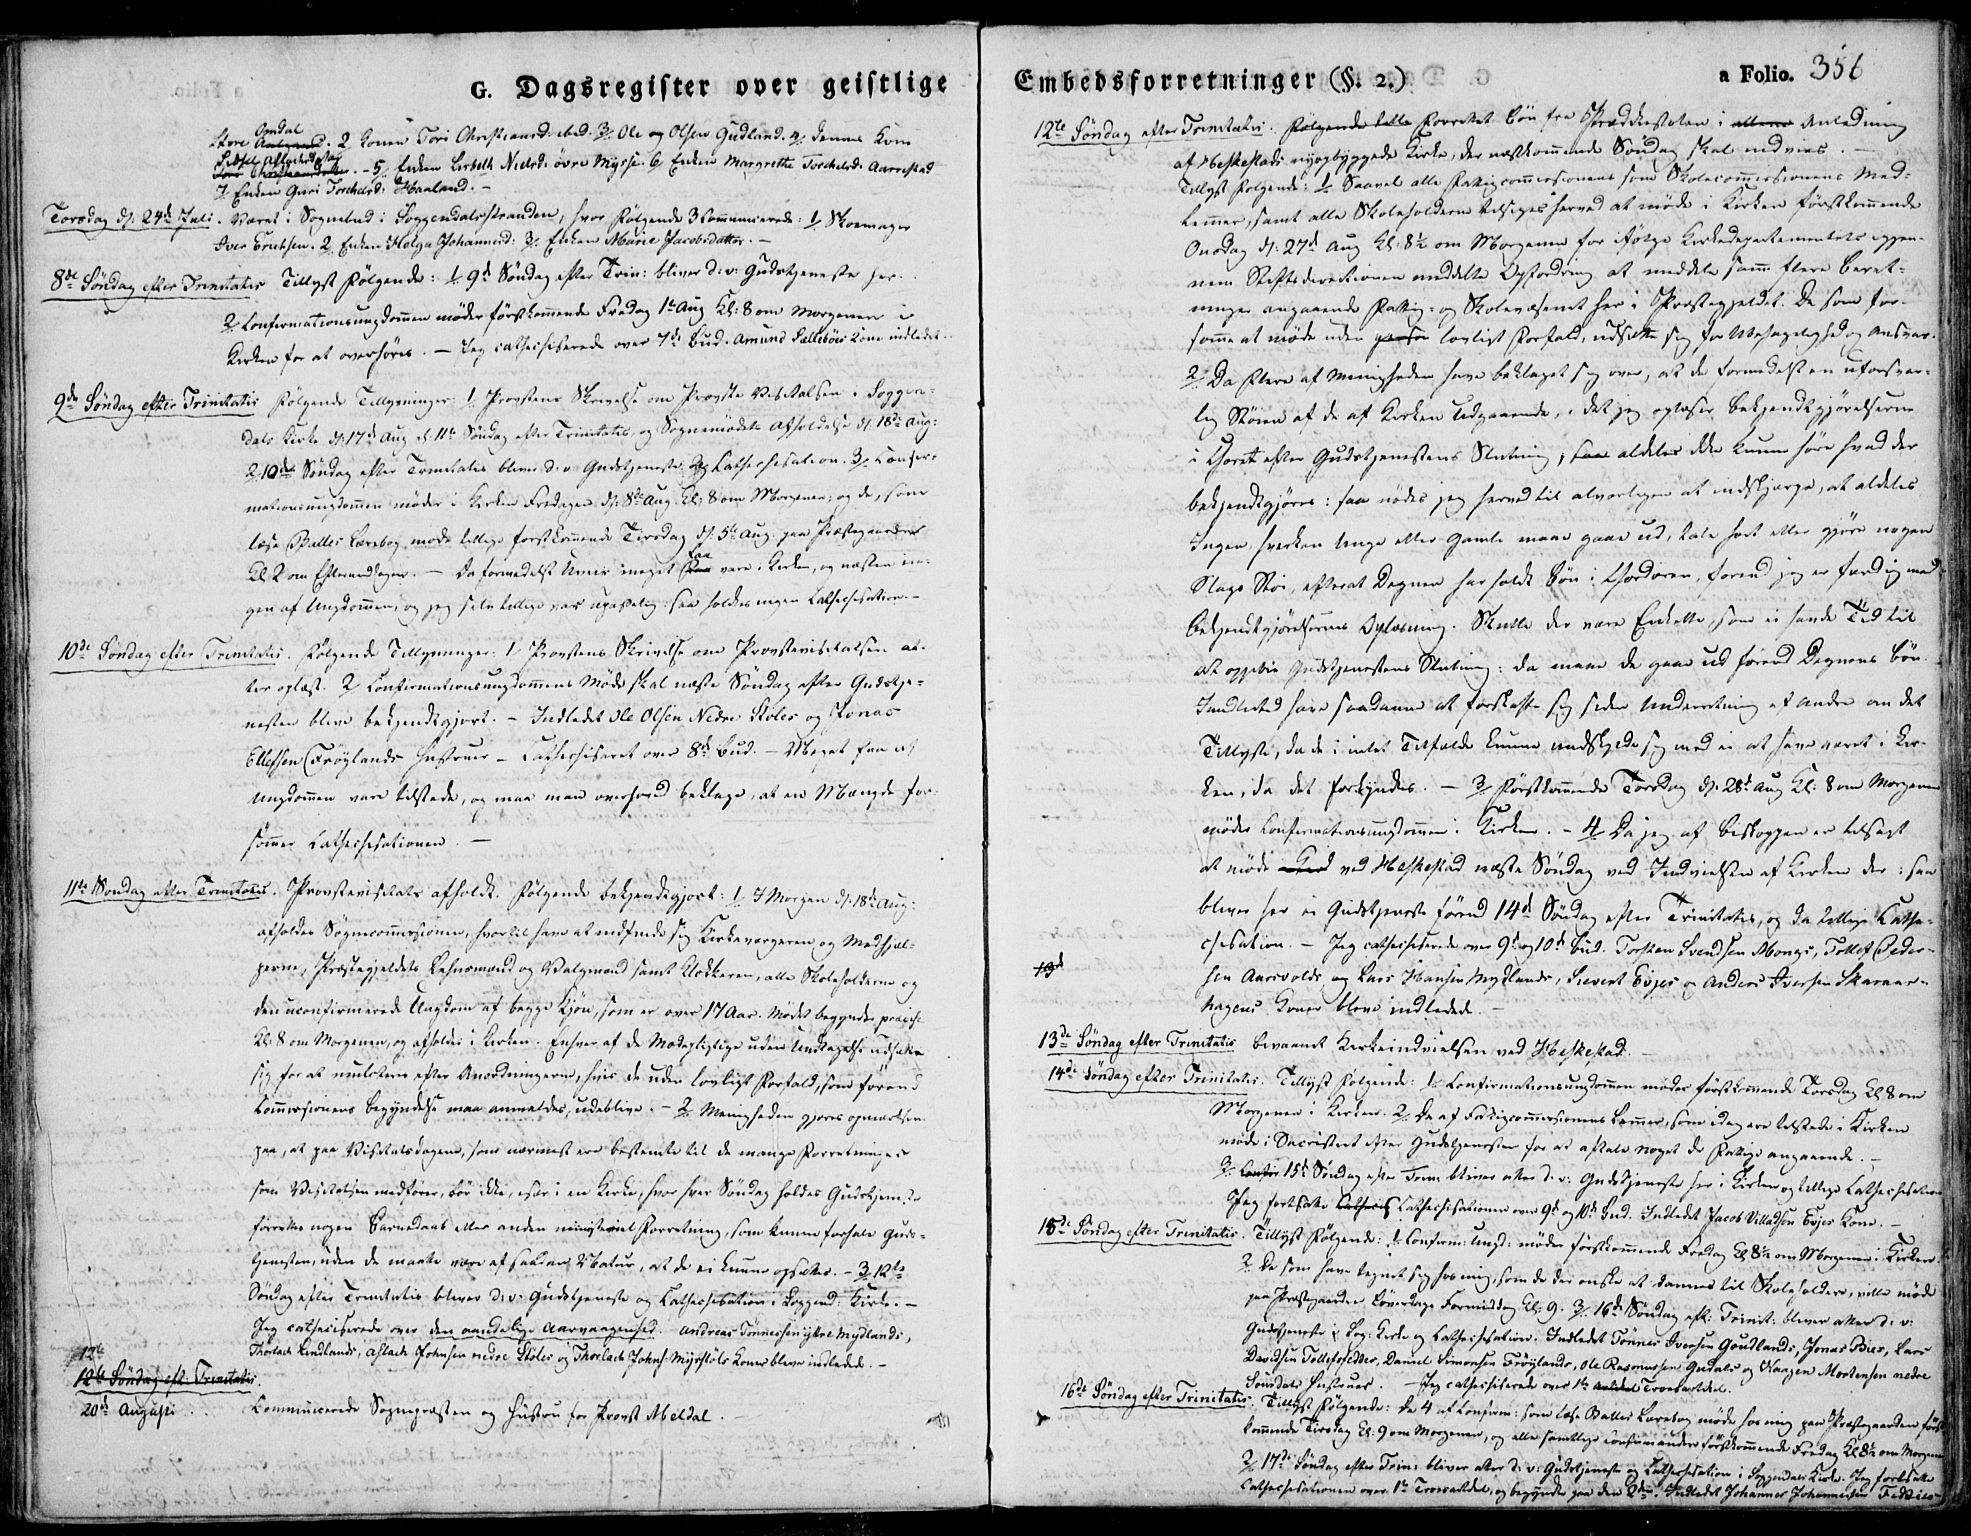 G. Dagsregister over geistlige
Omdal
Store . 2 Konen Tori Christiansd. ibid. 3/ Ole og Olsen Gudland. 4/ dennes Kone
Sidsel
. - 5/ Enken Lisbeth Nielsd: övre Mysse. 6/ Enken Margrethe Torchelsd: Aarrestad
7/ Enken Guri Torchelsd: Haaland. -
Torsdag d: 24de Juli. Været i Sognebud i Soggendalsstranden, hvor Følgende 3 kommunicerede: 1/ Skomager
Iver Erichsen. 2/ Enken Helga Johannesd: 3/ Enken Marie Jacobsdatter. -
8de Söndag efter Trinitatis Tillyst Følgende: 1/ 9de Söndag efter Trin: bliver d: v: Gudstjeneste her.
2/ Confirmationsungdommen möder förstkommende Fredag 1ste Aug Kl: 8 om Morgenen i
Kirken for at overhöres. - Jeg catechiserede over 7de Bud. Amund Sællebøes Kone indledet.
9de Söndag efter Trinitatis Følgende Tillysninger: 1/ Provstens Skrivelse om Provste Visitatsen i Soggen-
dals Kirke d: 17de Aug d: 11te Söndag efter Trinitatis, og Sognemödets Afholdelse d: 18de Aug:
2/ 10de Söndag efter Trinitatis bliver d: v: Gudstjeneste og Catechisation. 3/ Confir-
mationsungdommen möder i Kirken Fredagen d: 8de Aug. Kl: 8 om Morgenen; og de, som
læse Balles Lærebog, möde tillige förstkommende Tirsdag d: 5te Aug: paa Præstegaarden
Kl 2 om Eftermiddagen. - Da formedelst Uveir meget faa vare i Kirken, og næsten in-
gen af Ungdommen, og jeg selv tillige var upasselig: saa holdes ingen Catechisation. -
10de Söndag efter Trinitatis. Følgende Tillysninger: 1/ Provstens Skrivelse om Provstevisitatsen at-
ter oplæst. 2/ Confirmationsungdommens Möde skal næste Söndag efter Gudstje-
nesten blive bekjendtgjort. - Indledet Ole Olsen Nedre Stöles og Jonas
Ellefsen Fröylands Hustruer - Catechiseret over 8de Bud. - Meget faa af
Ungdommen vare tilstede, og maa man overhoved beklage, at en Mængde for-
sömmer Catechisationen. -
11te Söndag efter Trinitatis. Provstevisitats afholdt. Følgende bekjendtgjort: 1/ I Morgen d: 18de Aug:
afholdes Sognecommissionen, hvortil have at indfinde sig Kirkeværgeren og Medhjæl-
perne, Præstegjeldets Lehnsmænd og Valgmænd samt Klokkeren, alle Skoleholderne og
den uconfirmerede Ungdom af begge Kjön, som er over 17 Aar. Mödet begynder præcise
Kl: 8 om Morgenen, og afholdes i Kirken. Enhver af de Mödepligtige uden Undtagelse udsætter
sig for at mulcteres efter Anordningerne, hvis de uden lovligt Forfald, som förend
Commissionens Begyndelse maa anmeldes, udeblive. - 2/ Menigheden gjøres opmærksom
paa, at paa Visitatsdagene, som nærmest ere bestemte til de mange Forretninger
som Visitatsen medförer, bör ikke, især i en Kirke, hvor hver Söndag holdes Gudstjeneste
forrettes nogen Barnedaab eller anden ministeriel Forretning, som kunne forhale Guds-
tjenesten, uden de maatte være af saadan Natur, at de ei kunne opsættes. - 3/ 12te
Söndag efter Trinitatis bliver d: v: Gudstjeneste og Catechisation i Soggend: Kirke. -
Jeg catechiserede over den aandelige Aarvaagenhed. Andreas Tönnessen ytre Mydlands,
Thorlack Lindlands, Aslack Johnsen nedre Stöles og Thorlack Johns: Myrstöls Koner bleve indledede. -
12te
12te Söndag eft: Trinitatis.
20de Augusti . . Communicerede Sognepræsten og Hustru for Provst Abeldal. -
Embedsforretninger (§. 2.)
a Folio. 356
12te Söndag efter Trinitatis. Følgende forrettet Bön fra Prædikestolen i Anledning
af Heskestads nyopbyggede Kirke, der næstkommende Söndag skal indvies. -
Tillyst Følgende: 1/ Saavel alle Fattigcommissionens som Skolecommissionens Med-
lemmer, samt alle Skoleholderne tilsiges herved at möde i Kirken förstkommende
Onsdag d: 27de Aug Kl: 8½ om Morgenen for ifölge Kirkedepartementets igjen-
nem Stiftsdirectionen meddelte Opfordring at meddele samme flere Beret-
ninger angaaende Fattig- og Skolevæsenet her i Præstegjeldet. De som for-
sömme at möde uden lovligt Forfald, udsætte sig for Ubehagelighed og Ansvar.
2/ Da Flere af Menigheden have beklaget sig over, at de formedelst en uforsvar-
lig Stöien af de af Kirken Udgaaende, i det jeg oplæser Bekjendtgjörelserne
i Choret efter Gudstjenestens Slutning, aldeles ikke kunne höre hvad der
bekjendtgjöres: saa nödes jeg herved til alvorligen at indskjærpe, at aldeles
Ingen hverken Unge eller Gamle maae gaae ud, tale höit eller gjöre nogen
Slags Stöi, efterat Degnen har holdt Bön i Chordören, förend jeg er færdig med
Bekjendtgjörelsernes Oplæsning. Skulle der være Enkelte, som ei havde Tid til
at oppebie Gudstjenestens Slutning: da maae de gaae ud förend Degnens Bön.
Imidlertid have saadanne at forskaffe sig siden Underretning af Andre om det
Tillyste, da de i intet Tilfælde kunne undskylde sig med ei at have været i Kir-
ken, da det forkyndtes. - 3/ Förstkommende Torsdag d: 28de Aug Kl: 8 om Morgenen
möder Confirmationsungdommen i Kirken. - 4/ Da jeg af Biskoppen er tilsagt
at möde ved Heskestad næste Söndag ved Indvielsen af Kirken der: saa
bliver her ei Gudstjeneste förend 14de Söndag efter Trinitatis, og da tillige Cathe-
chisation. - Jeg catechiserede over 9de og 10de Bud. Torsten Svendsen Monges, Tollef Peder-
13de
sen Aarsvolds, og Lars Hansen Mydlands, Sievert Evjes og Anders Iversen Skaraas-
hagens Koner bleve indledede. -
13de Söndag efter Trinitatis bivaanet Kirkeindvielsen ved Heskestad. -
14de Söndag efter Trinitatis. Tillyst Følgende: 1/ Confirmationsungdommen möder förstkommende Torsdag Kl 8 om
Morgenen i Kirken. 2/ De af Fattigcommissionens Lemmer, som idag ere tilstede i Kirken
möde i Sacristiet efter Gudstjenesten for at aftale noget de Fattige angaaende. -
3/ 15de Söndag efter Trin: bliver atter d: v: Gudstjeneste her i Kirken og tillige Catechisation
Jeg fortsatte Catechisationen over 9de og 10de Bud. Indledet Jacob Villadsen Evjes Kone. -
15de Söndag efter Trinitatis. Tillyst Følgende: 1/ Confirm: Ungd: möder förstkommende Fredag Kl 8½ om Morgenen i Kirken.
2/ De som have tegnet sig hos mig, som de der önske at dannes til Skoleholdere, ville möde
paa Præstegaarden Löverdags Formiddag Kl: 9. 3/ 16de Söndag eft: Trinit: bliver atter d: v:
Gudstjeneste i Sog: Kirke og Catechisation. Indledet Tönnes Iversen Goudlands, Jonas Bies, Lars
Davidsen Tollefssætter, Daniel Simonsen Fröylands, Ole Rasmussen Gudals og Haagen Mortensen nedre
Hustruer. - Jeg catechiserede over 1ste Troesartikel.
16de Söndag efter Trinitatis. Tillyst Følgende: De 4 af Confirm: som læse Balles Lærebog möde hos mig paa Præstegaarden först-
kommende Tirsdag Kl: 9 om Morgenen, og alle samtlige Confirmander förstkommende Fredag Kl 8½ om Morgenen
2/ 17de Söndag efter Trin: bliver atter d: v: Gudstjeneste og Catechisation i Soggendals Kirke. Jeg fortsatte
Catechisationen over 1ste Troesartikel, og begyndte paa den 2den. Indledet Johannes Johannessen